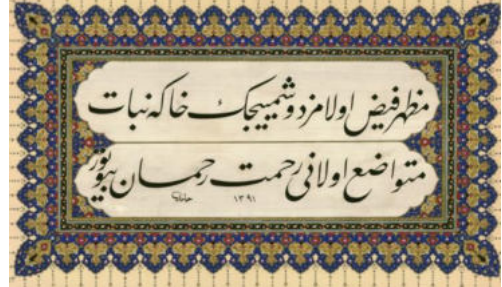 مظهر فيض اولامز دوشمييجك خاكه نبات
متواضع اولانى رحمت رحمان بيوتور
١٣٩١